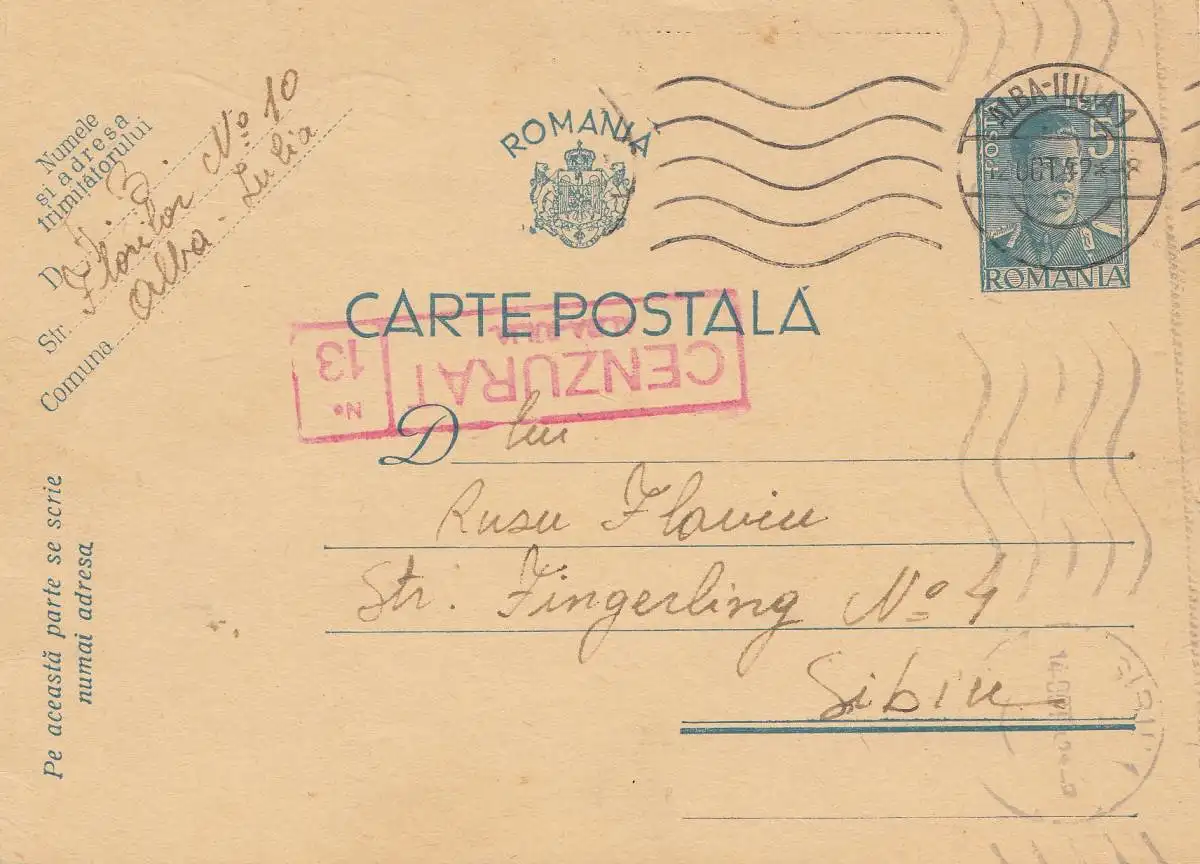 Numele
și adresa
trimitătorului
D
Str. Florilor No 10
Comuna Alba-Iulia
ROMANIA
POSTA LEI 5
ROMANIA
ALBA-IULIA
OCT 42
CARTE POSTALĂ
CENZURAT
ALBA-IULIA
No
13
D lui
Rusu Flaviu
Str. Fingerling No 4
Sibiu
SIBIU
14 OCT
Pe această parte se scrie
numai adresa